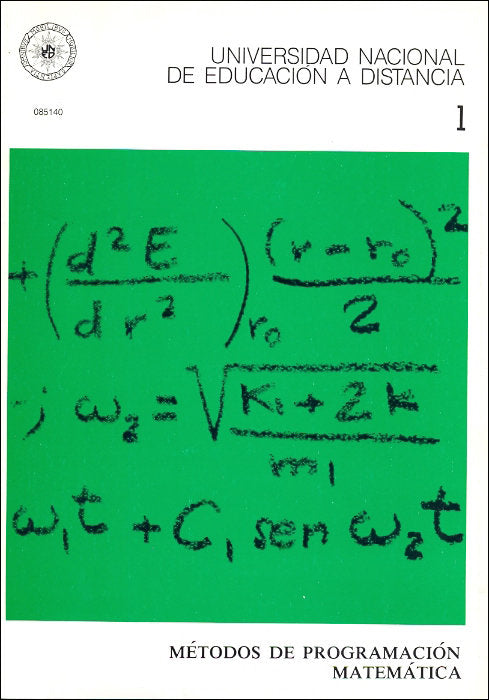 UNIVERSIDAD NACIONAL
DE EDUCACION A DISTANCIA
085140
1
+ (d²E/dr²)r₀ (r-r₀)²/2
; ω₂ = √(K₁+2k/m₁)
ω₁t + C₁ sen ω₂t
MÉTODOS DE PROGRAMACIÓN
MATEMÁTICA